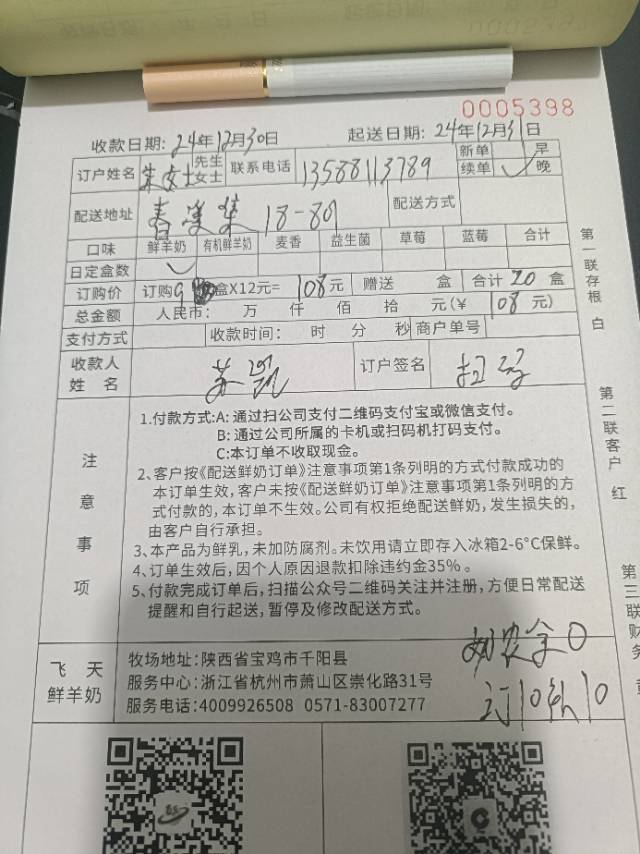 0005398
收款日期: 24年12月30日 起送日期: 24年12月31日
订户姓名 朱女士 先生 女士 联系电话 13588113789 新单 续单 早 晚
配送地址 18-801 配送方式
口味 鲜羊奶 有机鲜羊奶 麦香 益生菌 草莓 蓝莓 合计
日定盒数
订购价 订购9盒X12元= 108元 赠送 盒 合计 20 盒
总金额 人民币: 万 仟 佰 拾 元(￥ 108 元)
支付方式 收款时间: 时 分 秒 商户单号
收款人姓名 订户签名
注意事项
1.付款方式:A: 通过扫公司支付二维码支付宝或微信支付。
B: 通过公司所属的卡机或扫码机打码支付。
C:本订单不收取现金。
2、客户按《配送鲜奶订单》注意事项第1条列明的方式付款成功的
本订单生效,客户未按《配送鲜奶订单》注意事项第1条列明的方
式付款的,本订单不生效。公司有权拒绝配送鲜奶,发生损失的,
由客户自行承担。
3、本产品为鲜乳,未加防腐剂。未饮用请立即存入冰箱2-6°C保鲜。
4、订单生效后,因个人原因退款扣除违约金35%。
5、付款完成订单后,扫描公众号二维码关注并注册,方便日常配送
提醒和自行起送,暂停及修改配送方式。
飞天
鲜羊奶
牧场地址:陕西省宝鸡市千阳县
服务中心:浙江省杭州市萧山区崇化路31号
服务电话:4009926508 0571-83007277
订10送10
第一联存根 白
第二联客户 红
第三联财务